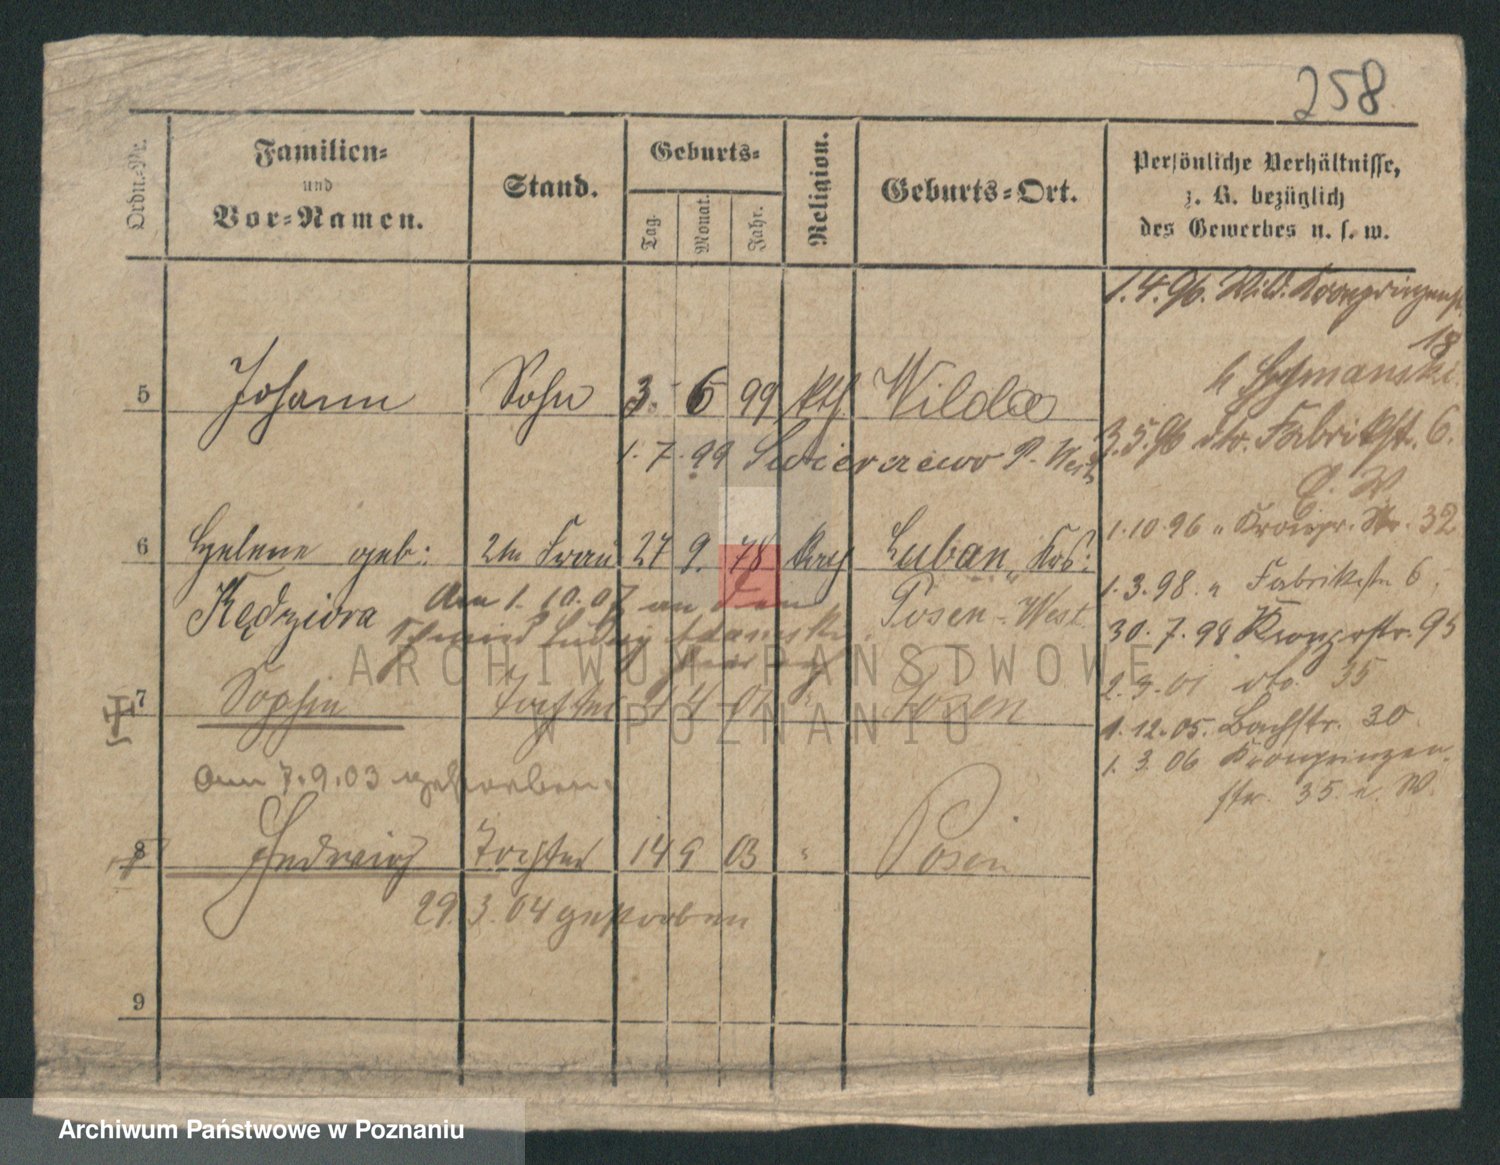 258
Ordn.-Nr.
Familien-
und
Vor-Namen.
Stand.
Geburts-
Tag.
Monat.
Jahr.
Religion.
Geburts-Ort.
Persönliche Verhältnisse,
z. B. bezüglich
des Gewerbes u. s. w.
1.4.96. Wild. Kronprinzenst.
18
5 Johann Sohn 3. 6 99 kth Wilda
3.5.96 dto. Fabrikstr. 6.
1.7.99 P. West
1.10.96 " Kronpr. Str. 32
6 Helene geb: 2te Frau 27 9. 78 kath Luban, Krs:
Kędziora Posen-West
1.3.98. " Fabrikstr 6.
Am 1.10.07 an den
30.7.98 Kronprstr. 95
2.9.01 dto. 35
7 Sophie Tochter 14 4 01 " Posen
1.12.05. Bachstr. 30
1.3.06 Kronprinzen-
str. 35. i. W.
am 7.9.03 gestorben.
8 Hedwig Tochter 14 9 03 " Posen
29.3.04 gestorben
9
ARCHIWUM PAŃSTWOWE
W POZNANIU
Archiwum Państwowe w Poznaniu